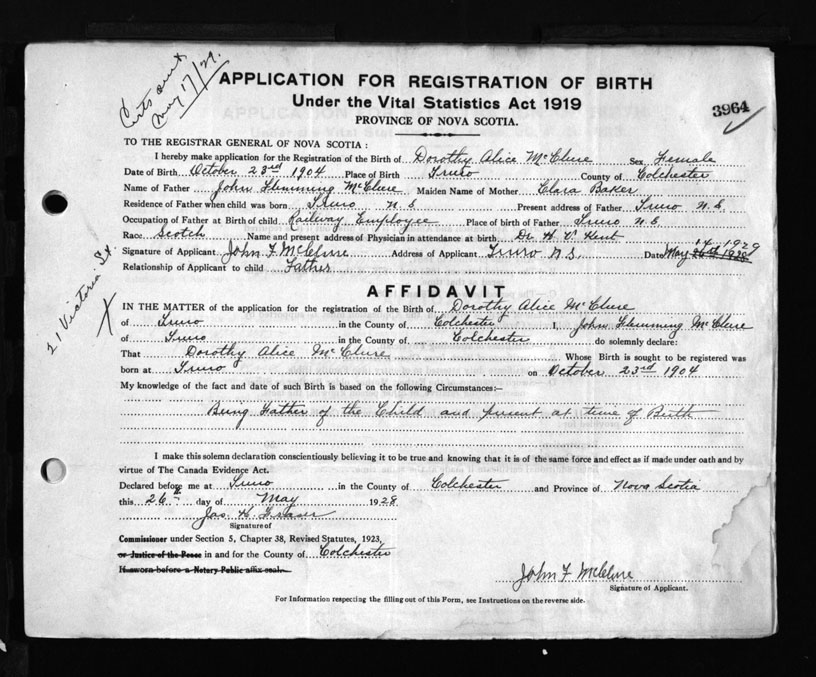 Certs sent
May 17/29.
APPLICATION FOR REGISTRATION OF BIRTH
Under the Vital Statistics Act 1919
3964
PROVINCE OF NOVA SCOTIA.
TO THE REGISTRAR GENERAL OF NOVA SCOTIA :
I hereby make application for the Registration of the Birth of Dorothy Alice McClure Sex Female
Date of Birth October 23rd 1904 Place of Birth Truro County of Colchester
Name of Father John Flemming McClure Maiden Name of Mother Clara Baker
Residence of Father when child was born Truro N.S. Present address of Father Truro N.S.
Occupation of Father at Birth of child Railway Employee Place of birth of Father Truro N.S.
Race Scotch Name and present address of Physician in attendance at birth Dr H. V. Kent
14th 1929
Signature of Applicant John F. McClure Address of Applicant Truro N.S. Date May 26th 1928
Relationship of Applicant to child Father
21 Victoria St.
AFFIDAVIT
IN THE MATTER of the application for the registration of the Birth of Dorothy Alice McClure
of Truro in the County of Colchester I, John Flemming McClure
of Truro in the County of Colchester do solemnly declare:
That Dorothy Alice McClure Whose Birth is sought to be registered was
born at Truro on October 23rd 1904
My knowledge of the fact and date of such Birth is based on the following Circumstances:—
Being Father of the Child and present at time of Birth
I make this solemn declaration conscientiously believing it to be true and knowing that it is of the same force and effect as if made under oath and by
virtue of The Canada Evidence Act.
Declared before me at Truro in the County of Colchester and Province of Nova Scotia
this 26th day of May 1928
Jas. H. Fraser
Signature of
Commissioner under Section 5, Chapter 38, Revised Statutes, 1923,
or Justice of the Peace in and for the County of Colchester
If sworn before a Notary Public affix seal.
John F McClure
Signature of Applicant.
For Information respecting the filling out of this Form, see Instructions on the reverse side.